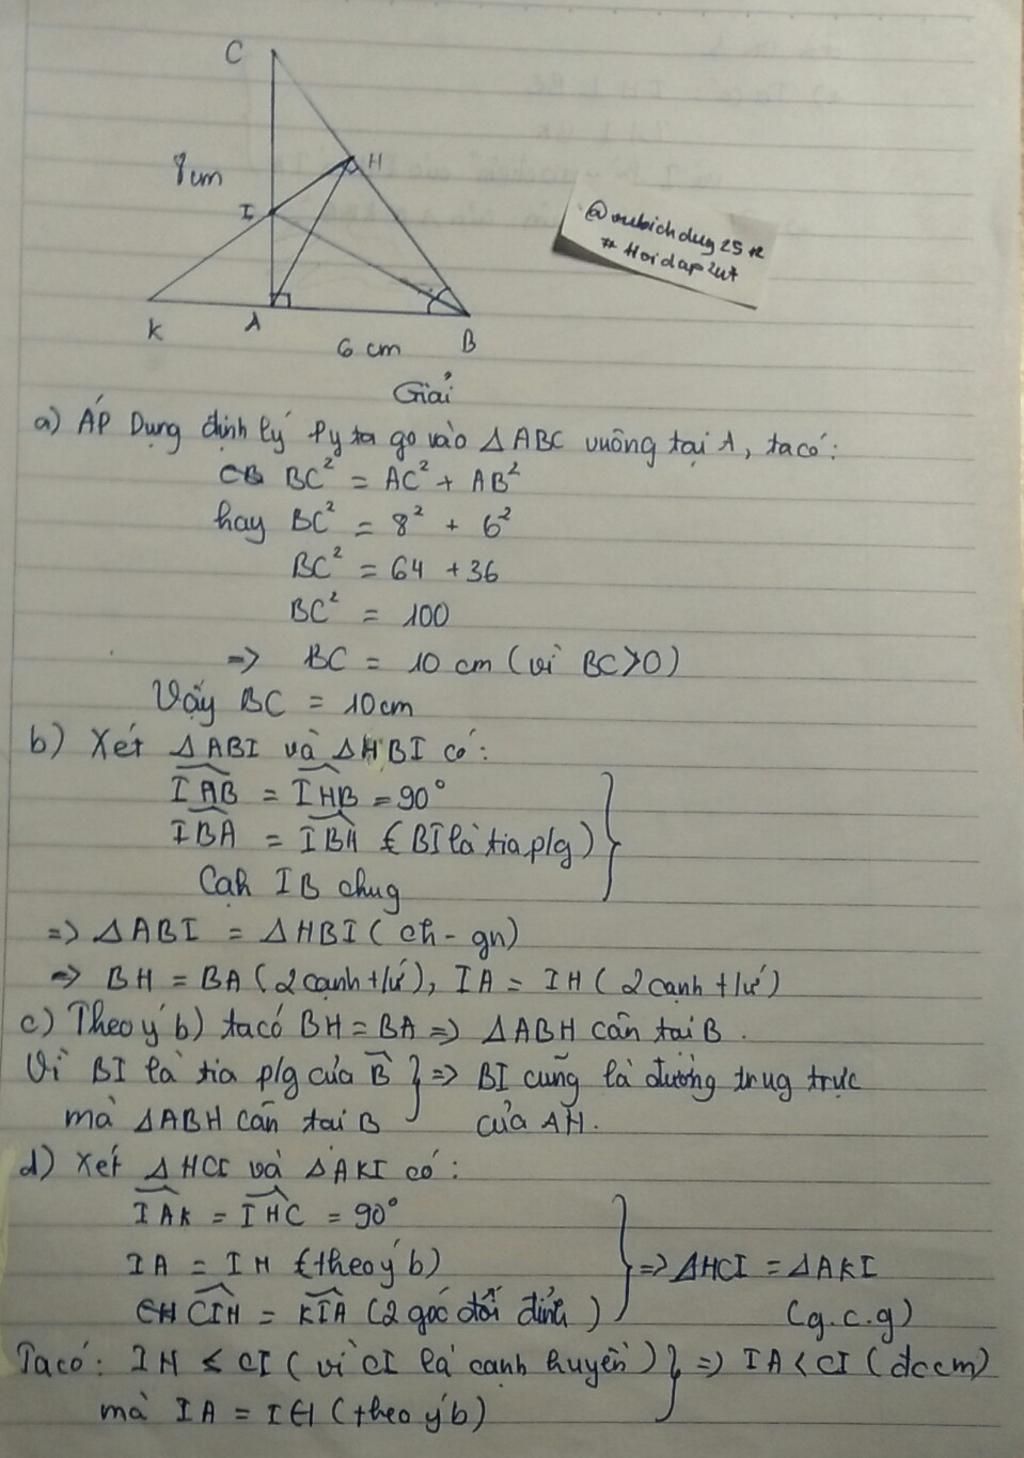 C
H
8cm
I
@vubichdug25 12
# Hoidap247
K
A
6 cm
B
Giải
a) ÁP Dụng định lý Py ta go vào Δ ABC vuông tại A, ta có:
BC² = AC² + AB²
hay BC² = 8² + 6²
BC² = 64 + 36
BC² = 100
=> BC = 10 cm (vì BC>0)
Vậy BC = 10cm
b) Xét Δ ABI và Δ HBI có:
IAB = IHB = 90°
IBA = IBH (BI là tia p/g)
Cạh IB chug
=> ΔABI = ΔHBI (ch - gn)
=> BH = BA (2 cạnh t/ứ), IA = IH (2 cạnh t/ứ)
c) Theo ý b) ta có BH = BA => ΔABH cân tại B.
Vì BI là tia p/g của B } => BI cũng là đường trug trực
mà ΔABH cân tai B của AH.
d) Xét Δ HCI và Δ AKI có:
IAK = IHC = 90°
IA = IH (theo ý b) => ΔHCI = ΔAKI
CIH = KIA (2 góc đối đỉnh) (g.c.g)
Ta có: IH < CI (vì CI là cạnh huyền) } => IA < CI (đccm)
mà IA = IH (theo ý b)